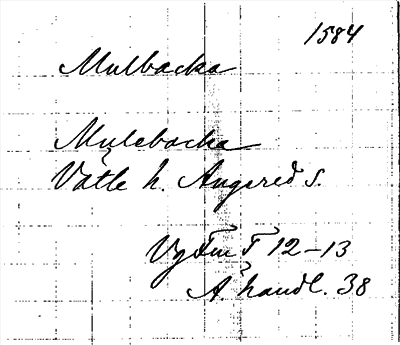 1584
Mulbacka
Mulebacka
Vätle h. Angered s.
Vg Fm T 12-13
A. handl. 38